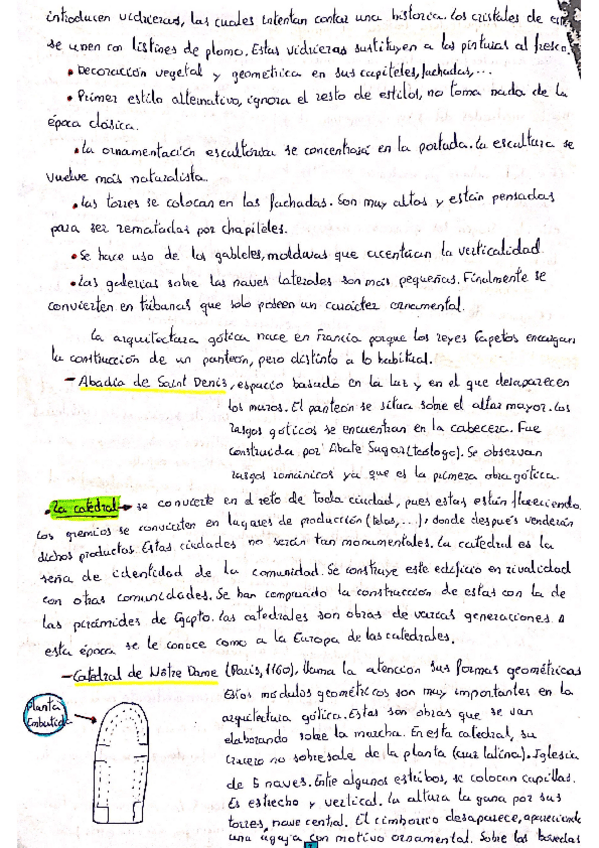 introducen vidrieras, las cuales intentan contar una historia. Los cristales de
se unen con listines de plomo. Estas vidrieras sustituyen a las pinturas al fresco.
• Decoración vegetal y geométrica en sus capiteles, fachadas,...
• Primer estilo alternativo, ignora el resto de estilos, no toma nada de la
época clásica.
• La ornamentación escultórica se concentrará en la portada. La escultura se
vuelve más naturalista.
• Las torres se colocan en las fachadas. Son muy altas y están pensadas
para ser rematadas por chapiteles.
• Se hace uso de los gabletes, molduras que acentúan la verticalidad
• Las galerías sobre las naves laterales son más pequeñas. Finalmente se
convierten en tribunas que solo poseen un carácter ornamental.
La arquitectura gótica nace en Francia porque los reyes Capetos encargan
la construcción de un panteón, pero distinto a lo habitual.
- Abadía de Saint Denis, espacio basado en la luz y en el que desaparecen
los muros. El panteón se situa sobre el altar mayor. Los
rasgos góticos se encuentran en la cabecera. Fue
construida por Abate Sugar (teólogo). Se observan
rasgos románicos ya que es la primera obra gótica.
• La catedral → se convierte en el reto de toda ciudad, pues estas están floreciendo.
Los gremios se convierten en lugares de producción (telas,...), donde después venderán
dichos productos. Estas ciudades no serán tan monumentales. La catedral es la
seña de identidad de la comunidad. Se construye este edificio en rivalidad
con otras comunidades. Se han comparado la construcción de estas con la de
las pirámides de Egipto. Las catedrales son obras de varias generaciones. A
esta época se le conoce como a la Europa de las catedrales.
- Catedral de Nôtre Dame (París, 1160), llama la atención sus formas geométricas
Planta
Estos módulos geométricos son muy importantes en la
arquitectura gótica. Estas son obras que se van
elaborando sobre la marcha. En esta catedral, su
crucero no sobresale de la planta (cruz latina). Iglesia
de 5 naves. Entre algunos estribos, se colocan capillas.
Es estrecho y vertical. La altura la gana por sus
torres, nave central. El cimborrio desaparece, apareciendo
una aguja con motivo ornamental. Sobre las bóvedas